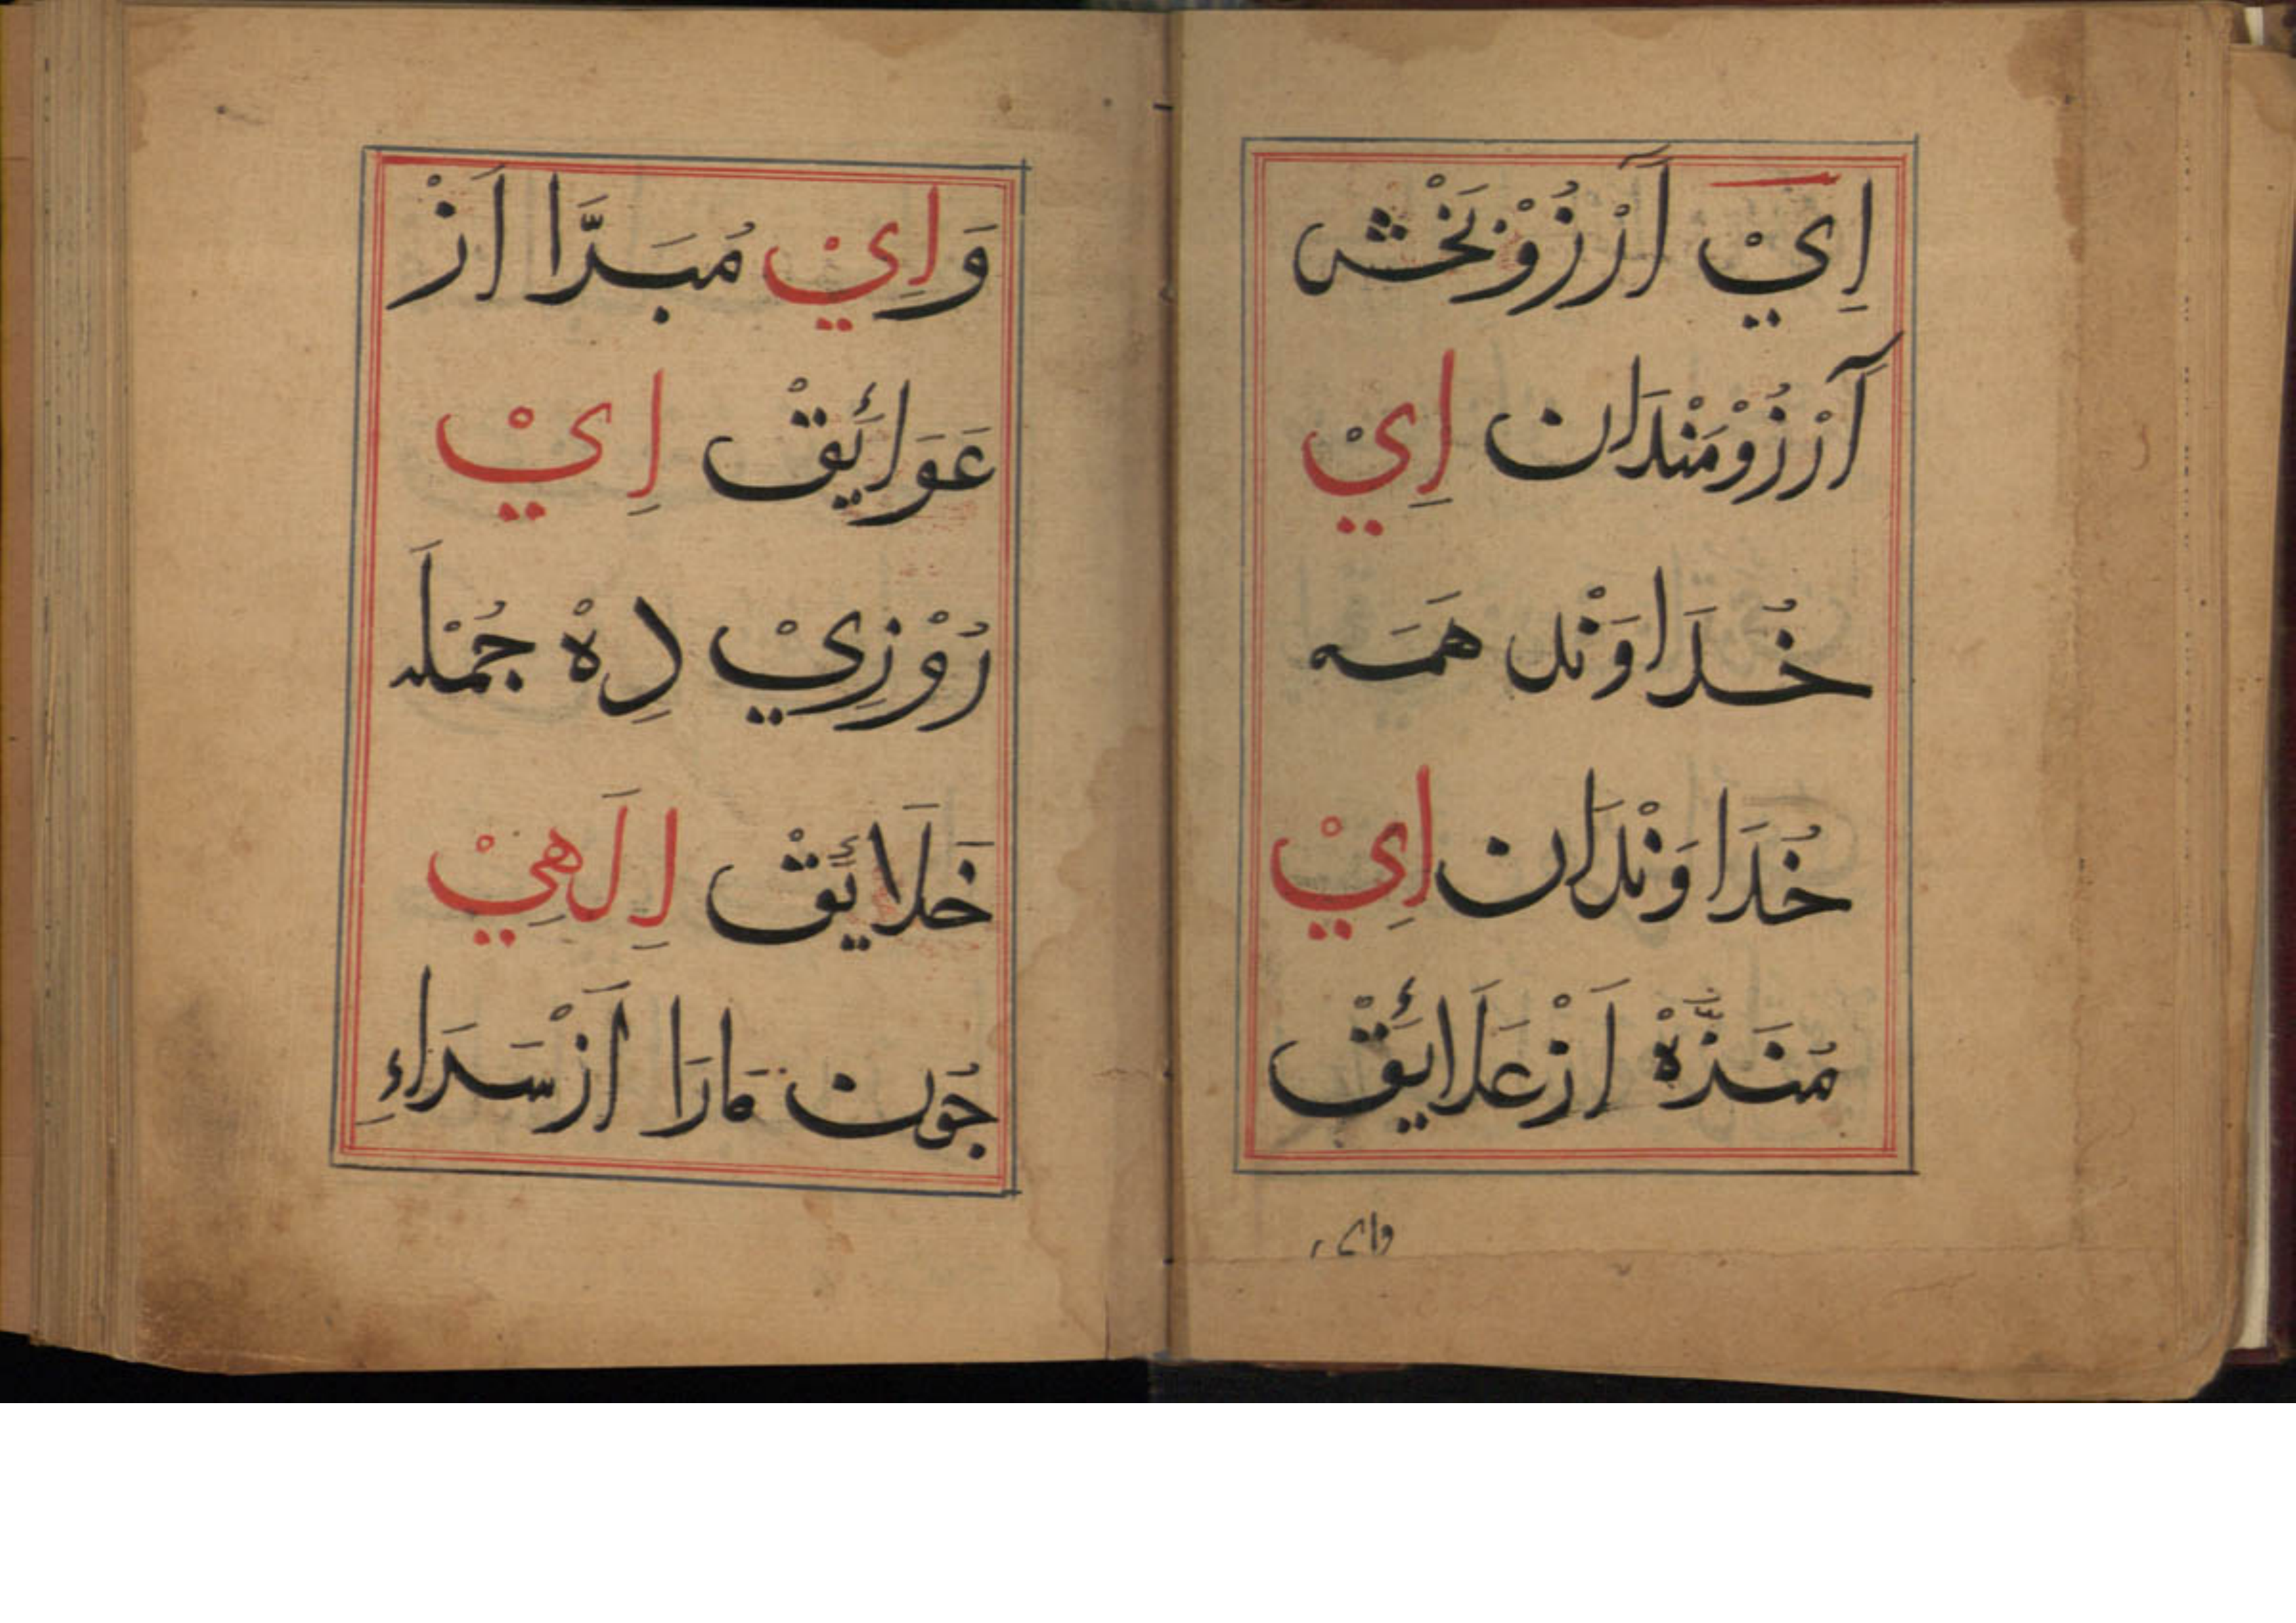 اِيْ آرْزُوْبَخْشِ
آرْزُوْمَنْدَانْ اِيْ
خُدَاوَنْدِ هَمَه
خُدَاوَنْدَانْ اِيْ
مُنَزَّهْ اَزْ عَلَائِقْ
وای
وَ اِيْ مُبَرَّا اَزْ
عَوَائِقْ اِيْ
رُوْزِيْ دِهْ جُمْلَه
خَلَائِقْ اِلَهِيْ
چُون مَارَا اَزْ سَرَاءِ